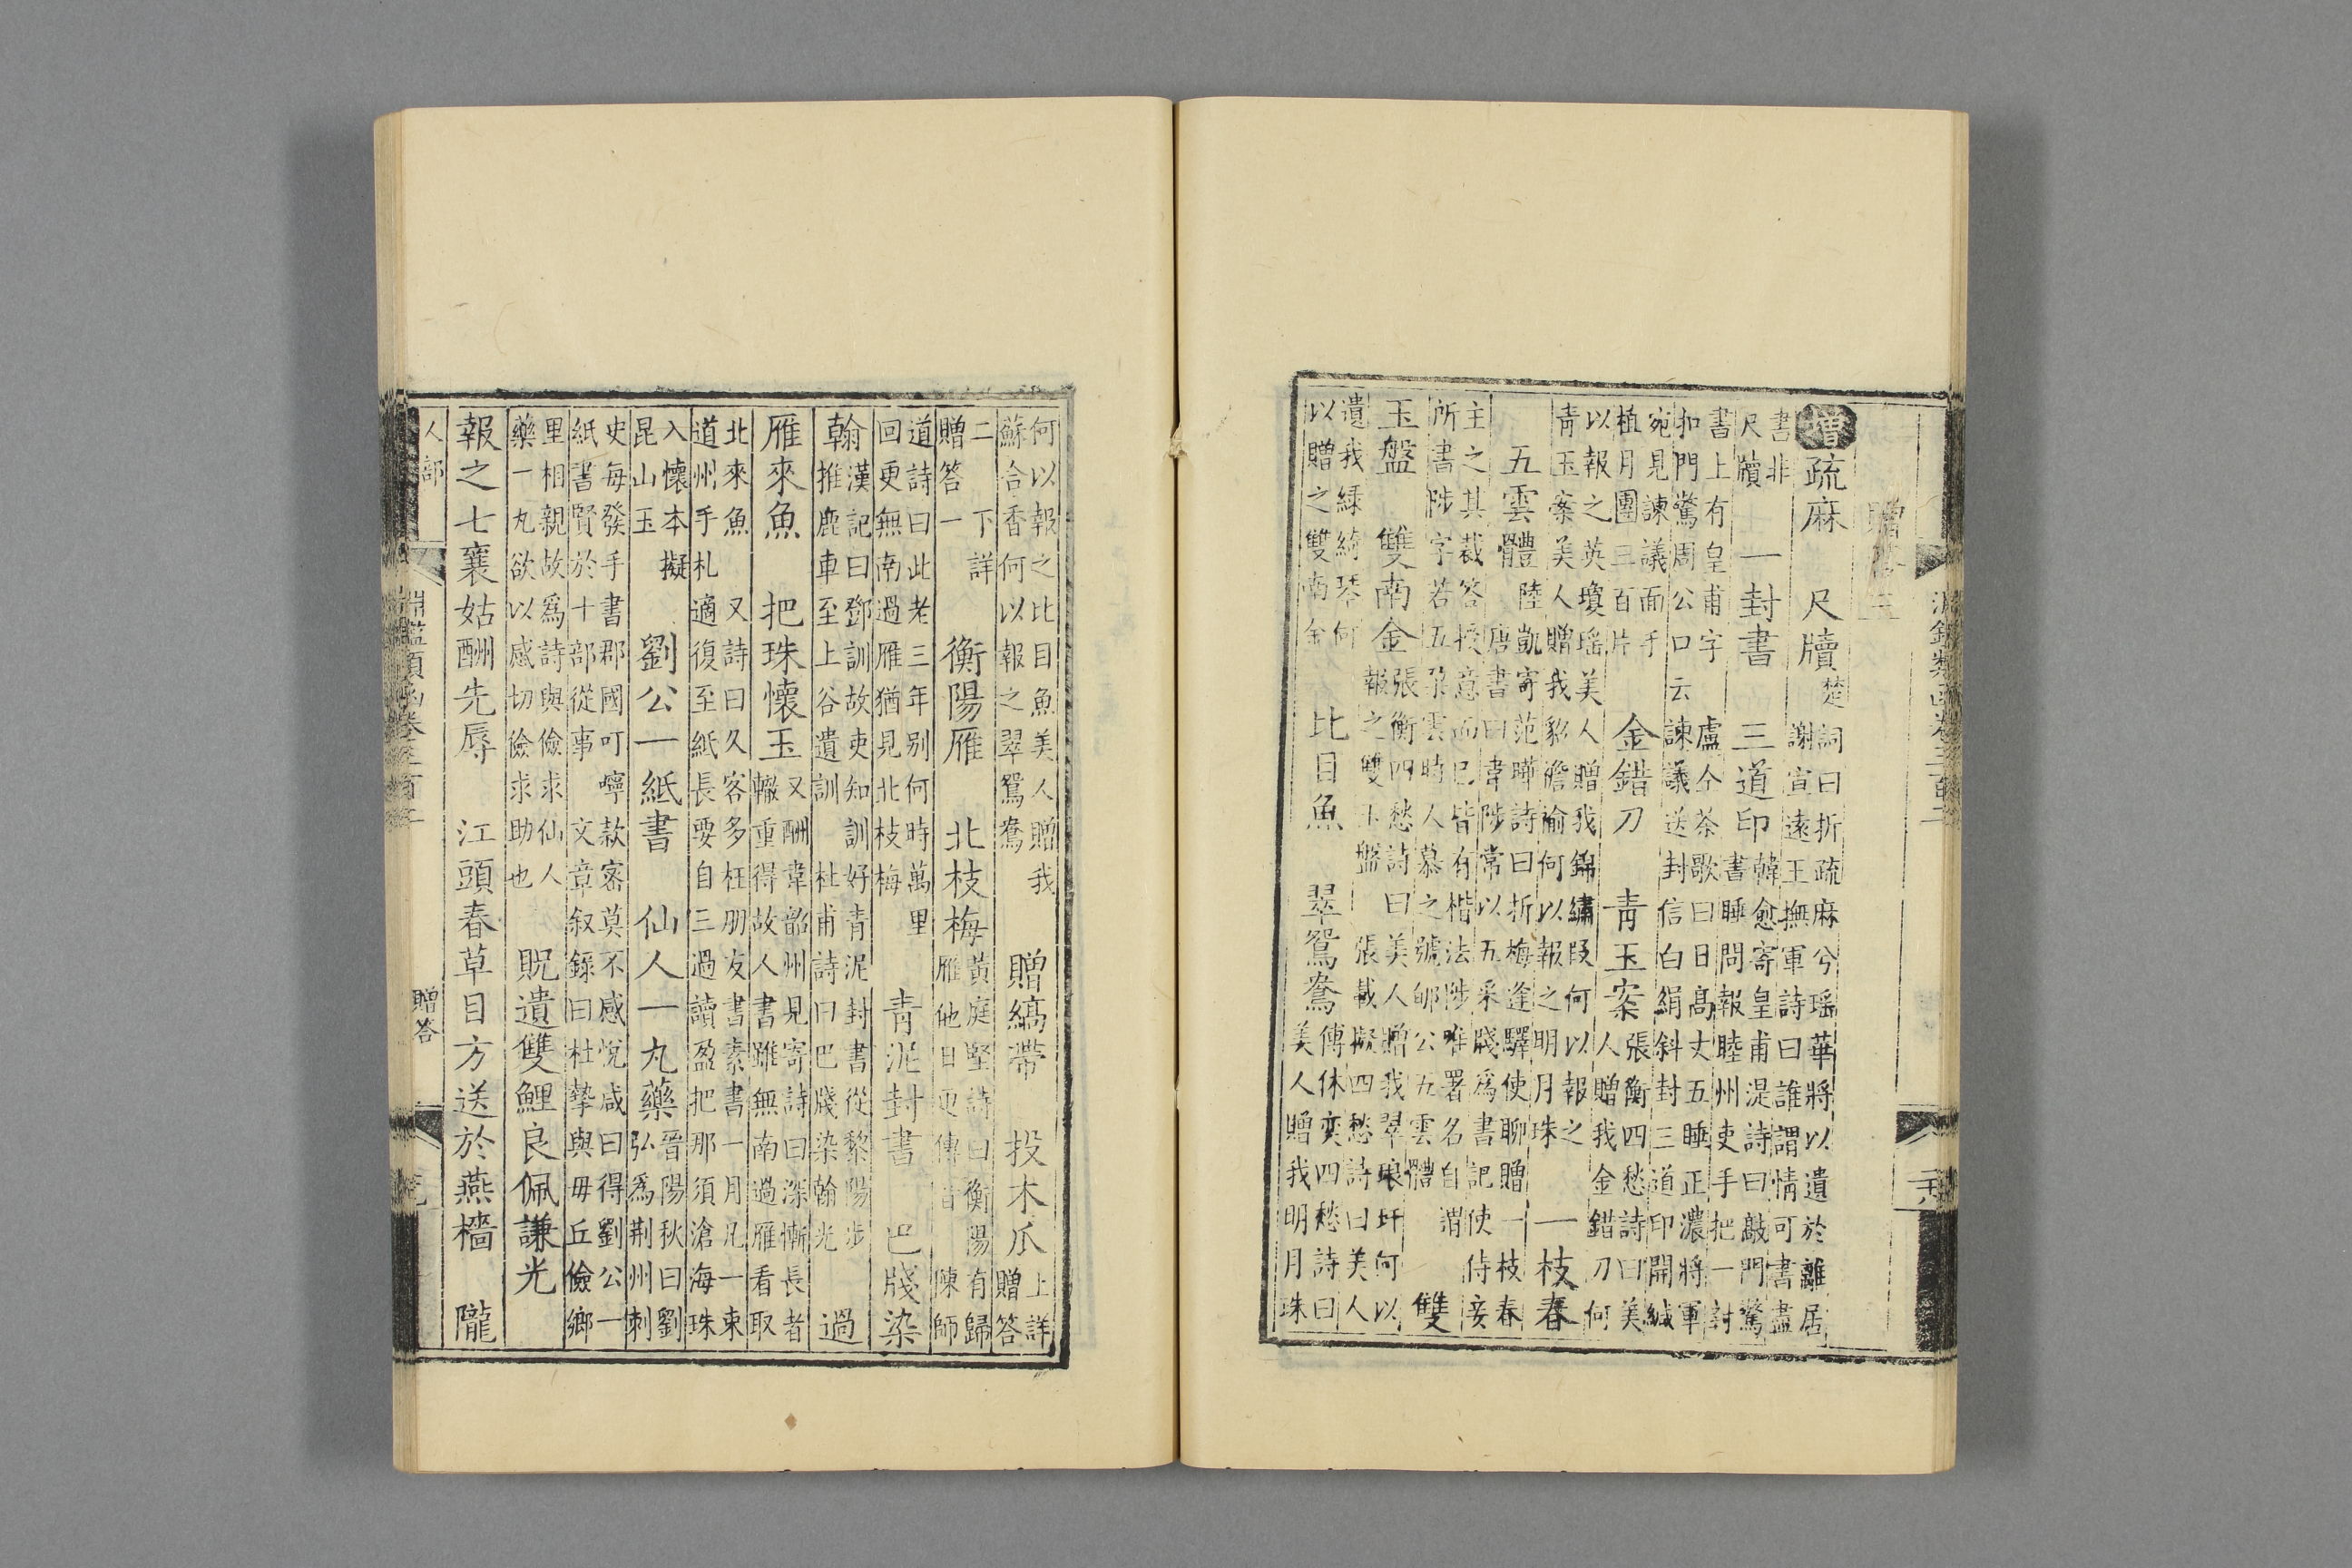 淵鑑類函卷三百二 二十八
贈答三
增 疏麻 尺牘 楚詞曰折疏麻兮瑶華將以遺於離居謝宣遠王撫軍詩曰誰謂情可書盡
書非尺牘 一封書 三道印 韓愈寄皇甫湜詩曰敲門驚書睡問報睦州吏手把一封
書上有皇甫字 盧仝茶歌曰日高丈五睡正濃將軍扣門驚周公口云諫議送封信白絹斜封三道印開緘
宛見諫議面手植月團三百片 金錯刀 青玉案 張衡四愁詩曰美人贈我金錯刀何
以報之英瓊瑶美人贈我錦繡段何以報之青玉案美人贈我貂襜褕何以報之明月珠 一枝春
五雲體 陸凱寄范曄詩曰折梅逢驛使聊贈一枝春唐書曰韋陟常以五采牋爲書記使侍妾
主之其裁答授意而已皆有楷法陟唯署名自謂所書陟字若五朶雲時人慕之號郇公五雲體 雙
玉盤 雙南金 張衡四愁詩曰美人贈我翠琅玕何以報之雙玉盤 張載擬四愁詩曰美人
遺我緑綺琴何以贈之雙南金 比目魚 翠鴛鴦 傅休奕四愁詩曰美人贈我明月珠
何以報之比目魚美人贈我蘇合香何以報之翠鴛鴦 贈縞帶 投木瓜 上詳贈答
二 下詳贈答一 衡陽雁 北枝梅 黃庭堅詩曰衡陽有歸雁他日更傳書 陳師
道詩曰此老三年别何時萬里回更無南過雁猶見北枝梅 青泥封書 巴牋染
翰 漢記曰鄧訓故吏知訓好青泥封書從黎陽步推鹿車至上谷遺訓 杜甫詩曰巴牋染翰光 過
雁來魚 把珠懷玉 又酬韋韶州見寄詩曰深慚長者轍重得故人書雖無南過雁看取
北來魚 又詩曰久客多枉朋友書素書一月凡一束道州手札適復至紙長要自三過讀盈把那須滄海珠
入懷本擬昆山玉 劉公一紙書 仙人一丸藥 晋陽秋曰劉弘爲荆州刺
史每發手書郡國叮嚀款密莫不感悅咸曰得劉公一紙書賢於十部從事 文章叙錄曰杜摯與毋丘儉鄉
里相親故爲詩與儉求仙人藥一丸欲以感切儉求助也 貺遺雙鯉良佩謙光
報之七襄姑酬先辱 江頭春草目方送於燕檣 隴
人部 淵鑑類函卷三百二 贈答